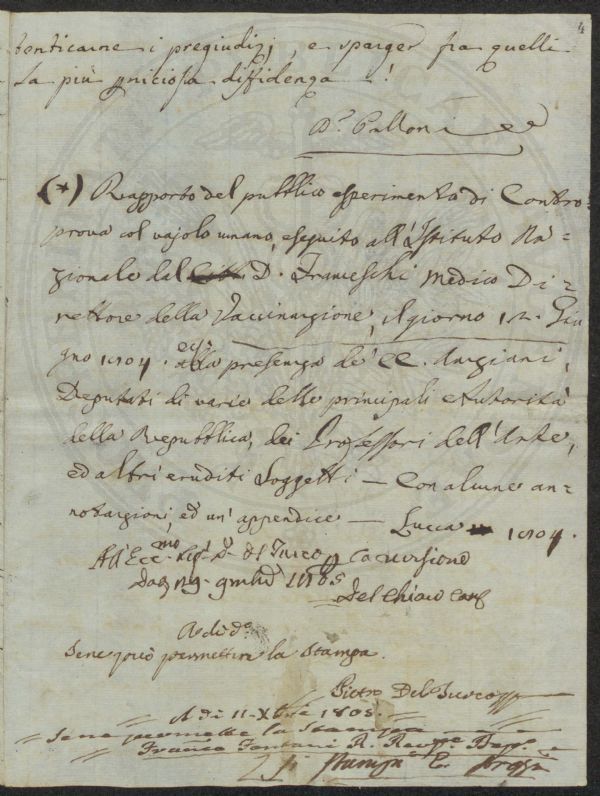 4
tenticarne i pregiudizj, e sparger fra quelli
la più perniciosa diffidenza !
D.r Palloni
(*) Rapporto del pubblico esperimento di Contro=
prova col vajolo umano, eseguito all'Istituto Na=
zionale dal D. Franceschi Medico Di=
rettore della Vaccinazione, il giorno 12. Giu
gno 1804. alla presenza de' CC. Anziani,
Deputati di varie delle principali Autorità
della Repubblica, dei Professori dell'Arte,
ed altri eruditi Soggetti — Con alcune an=
notazioni, ed un'appendice — Lucca 1804.
All'Ecc.mo Sig.r D. del Turco p la revisione
Del Chiaro Canc
A di d.o
Se ne può permettere la Stampa.
Pietro Del Turco
A di 11 Xbre 1805.
Se ne permette la Stampa
Franco Fontani R.
Si Stampi